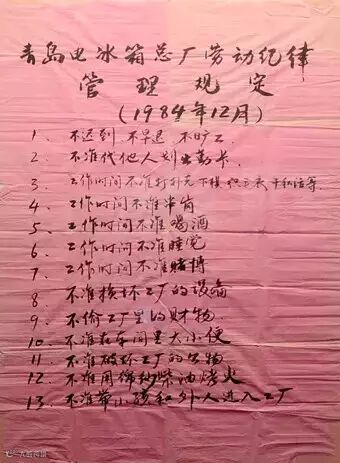 青岛电冰箱总厂劳动纪律
管理规定
(1984年12月)
1. 不迟到 不早退 不旷工
2. 不准代他人划出勤卡.
3. 工作时间不准打扑克 下棋 织毛衣 干私活等.
4 工作时间不准串岗
5 工作时间不准喝酒
6 工作时间不准睡觉
7. 工作时间不准赌博
8 不准损坏工厂的设备
9 不偷工厂里的财物
10 不准在车间里大小便
11 不准破坏工厂的公物
12. 不准用棉纱柴油烤火
13. 不准带小孩和外人进入工厂